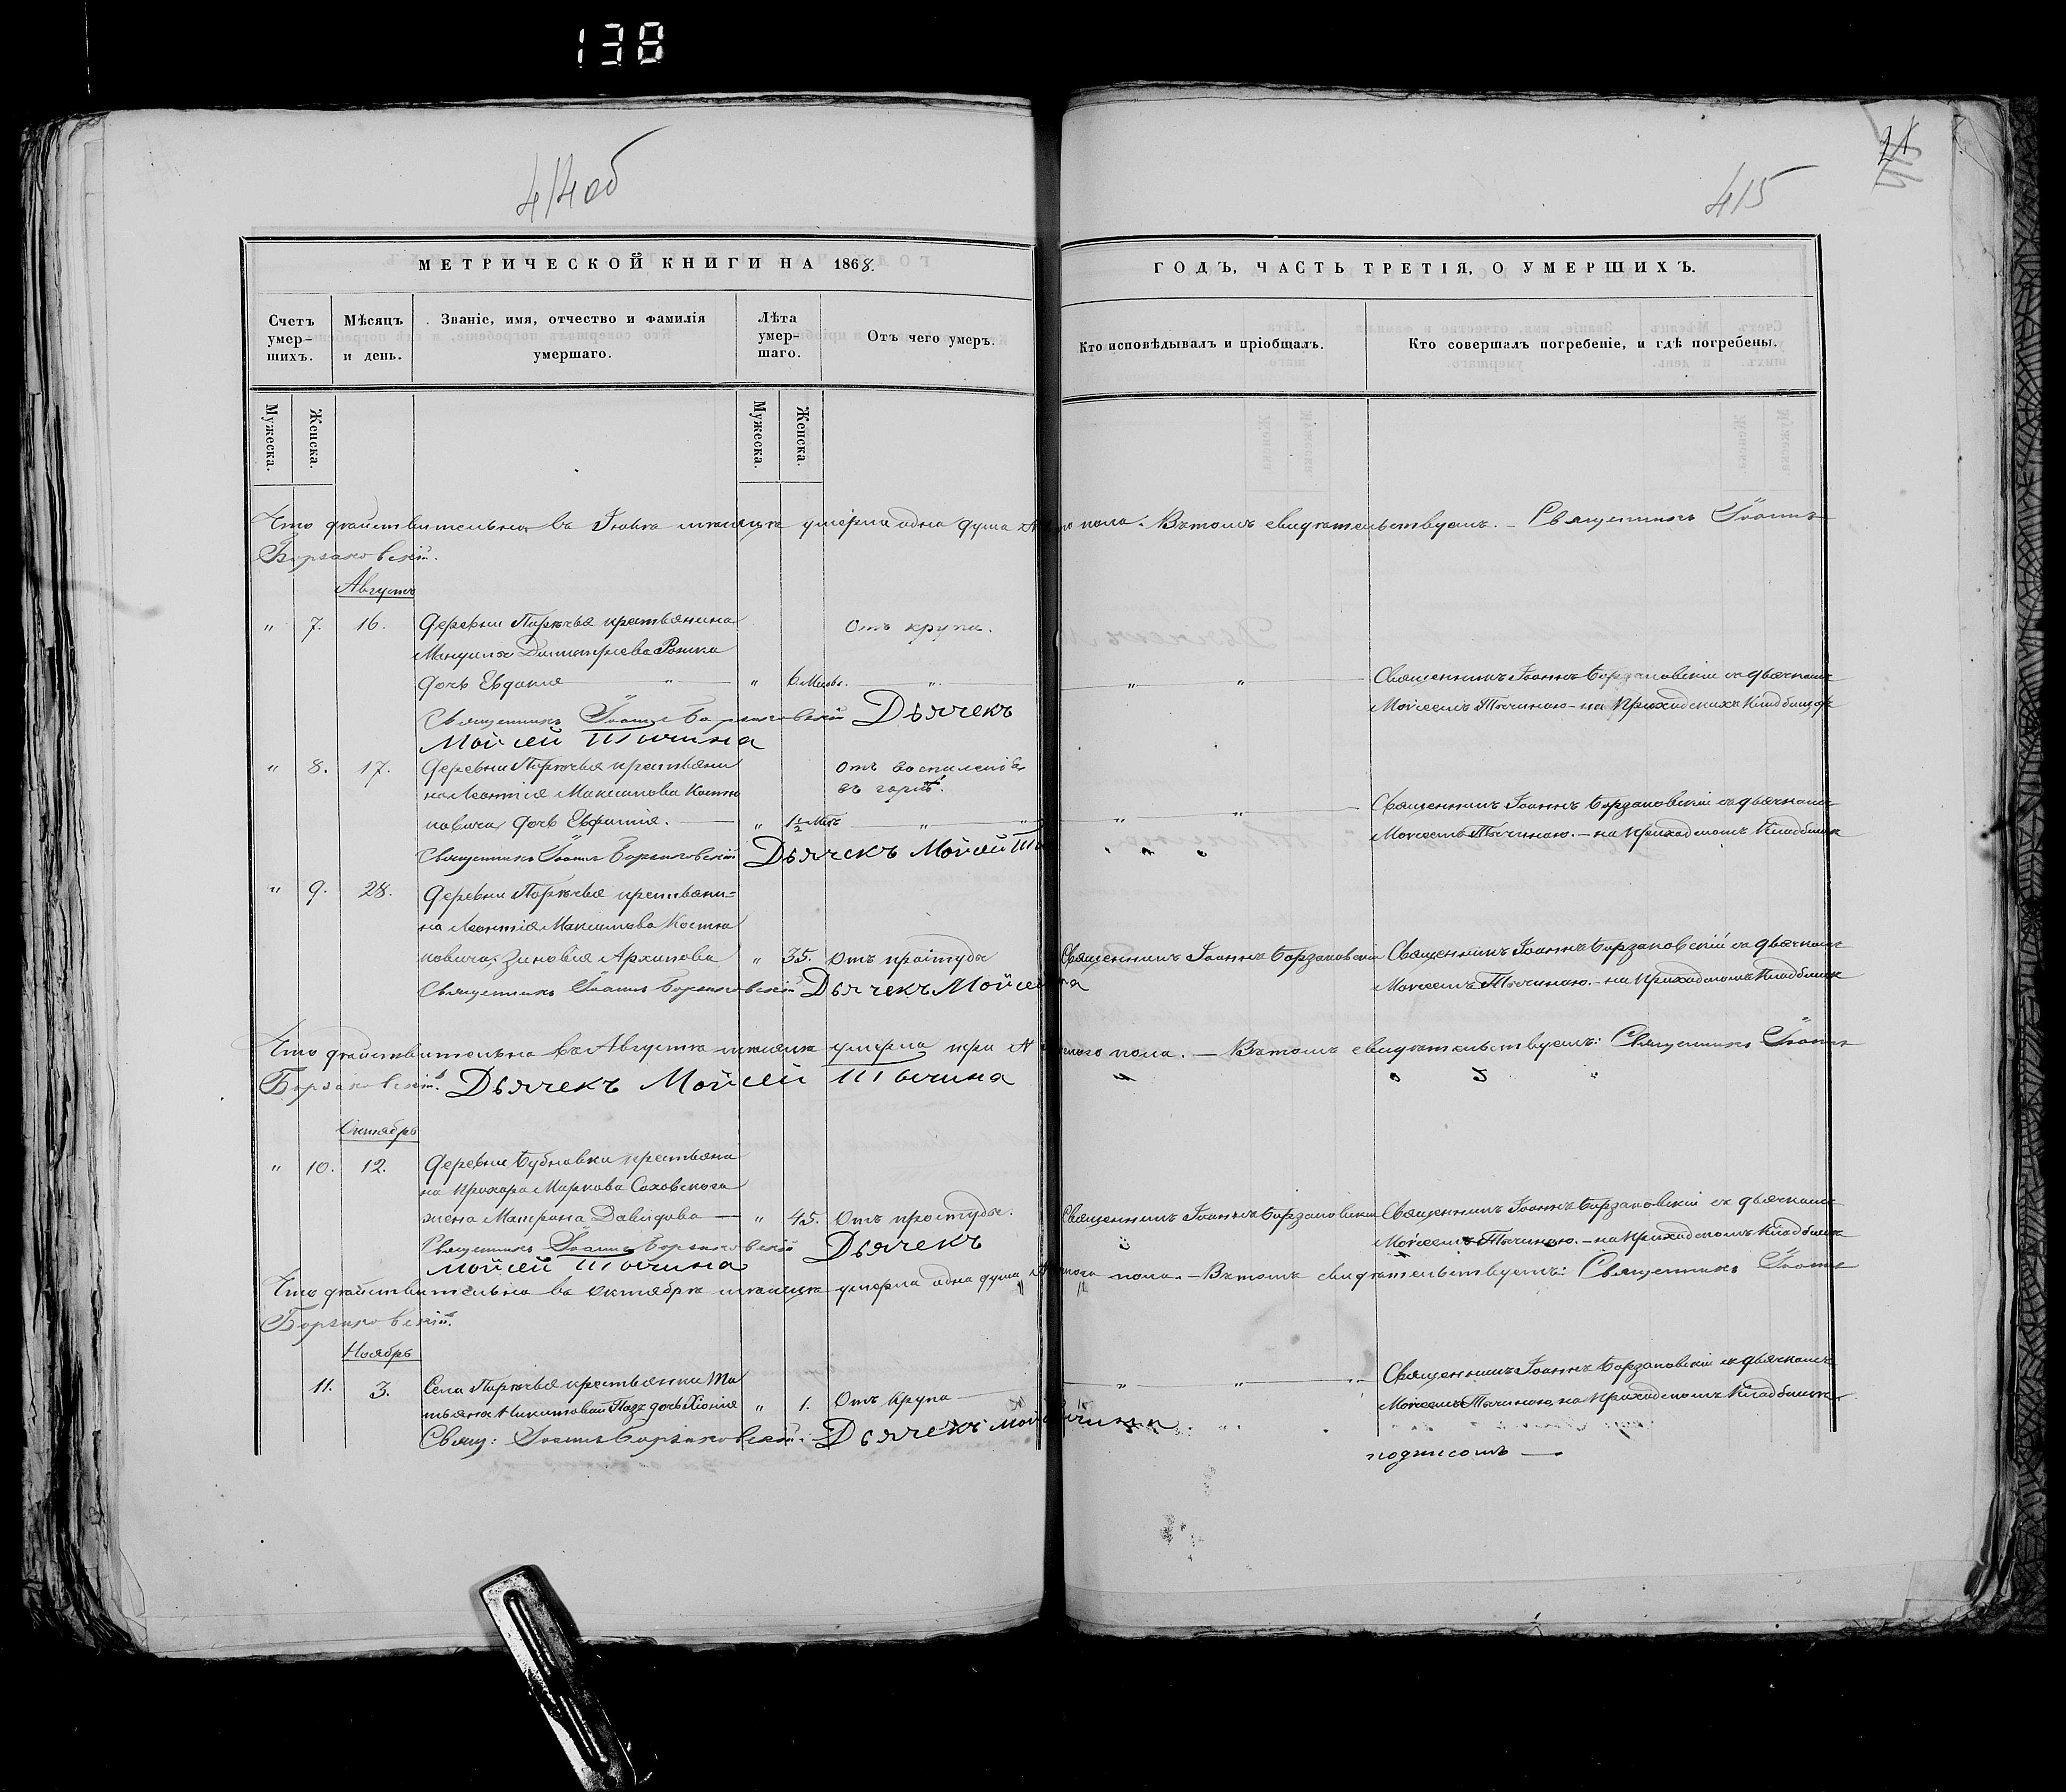 138
414об
МЕТРИЧЕСКОЙ КНИГИ НА 1868.
Счетъ умер-
шихъ.
Мѣсяцъ
и день.
Званіе, имя, отчество и фамилія
умершаго.
Лѣта
умер-
шаго.
Отъ чего умеръ.
Мужеска.
Женска.
Мужеска.
Женска.
415
ГОДЪ, ЧАСТЬ ТРЕТІЯ, О УМЕРШИХЪ.
Кто исповѣдывалъ и пріобщалъ.
Кто совершалъ погребеніе, и гдѣ погребены.
Что дѣйствительно въ мѣсяцѣ умерла одна душа пола. Въ томъ свидѣтельствуемъ. – Священникъ Іоаннъ
Борзаковскій.
Августъ
" 7. 16. Деревни Порѣчья крестьянина Отъ крупа.
Димитріева
дочь Евдокія " " 6 " " " Священникъ Іоаннъ Борзаковскій съ дьячкомъ
Священникъ Іоаннъ Борзаковскій Дьячекъ Мойсеемъ Тычиною – на Приходскихъ
Мойсей Тычина
" 8. 17. Деревни Порѣчья крестьяни отъ воспаленія
на Леонтія Максимова Костю въ горлѣ.
ковича, дочь Евфимія. " 1½ " " " " Священникъ Іоаннъ Борзаковскій съ дьячкомъ
Священникъ Іоаннъ Борзаковскій Дьячекъ Мойсей Мойсеемъ Тычиною. – на приходскомъ кладбищѣ
" 9. 28. Деревни Порѣчья крестьяни=
на Леонтія Максимова Костю
ковича, Зиновія Архипова " 35. Отъ простуды Священникъ Іоаннъ Борзаковскій Священникъ Іоаннъ Борзаковскій съ дьячкомъ
Священникъ Іоаннъ Борзаковскій Дьячекъ Мойсей Мойсеемъ Тычиною. – на приходскомъ кладбищѣ
Что дѣйствительно въ Августѣ мѣсяцѣ умерло три пола. – Въ томъ свидѣтельствуемъ: Священникъ Іоаннъ
Борзаковскій. Дьячекъ Мойсей Тычина
Октябрь
" 10. 12. Деревни Бубновки крестьяни
на Прохора Маркова Саховскаго
жена Матрона Давидова " 45. Отъ простуды. Священникъ Іоаннъ Борзаковскій Священникъ Іоаннъ Борзаковскій съ дьячкомъ
Священникъ Іоаннъ Борзаковскій Дьячекъ Мойсеемъ Тычиною. – на приходскомъ кладбищѣ
Мойсей Тычина
Что дѣйствительно въ Октябрѣ мѣсяцѣ умерла одна душа пола. – Въ томъ свидѣтельствуемъ: Священникъ Іоаннъ
Борзаковскій.
Ноябрь
11. 3. Села Порѣчья крестьянки Та
тьяны Никитовой дочь Хіонія " 1. Отъ крупа " " Священникъ Іоаннъ Борзаковскій съ дьячкомъ
Свящ: Іоаннъ Борзаковскій. Дьячекъ Мойсеемъ Тычиною, на приходскомъ кладбищѣ